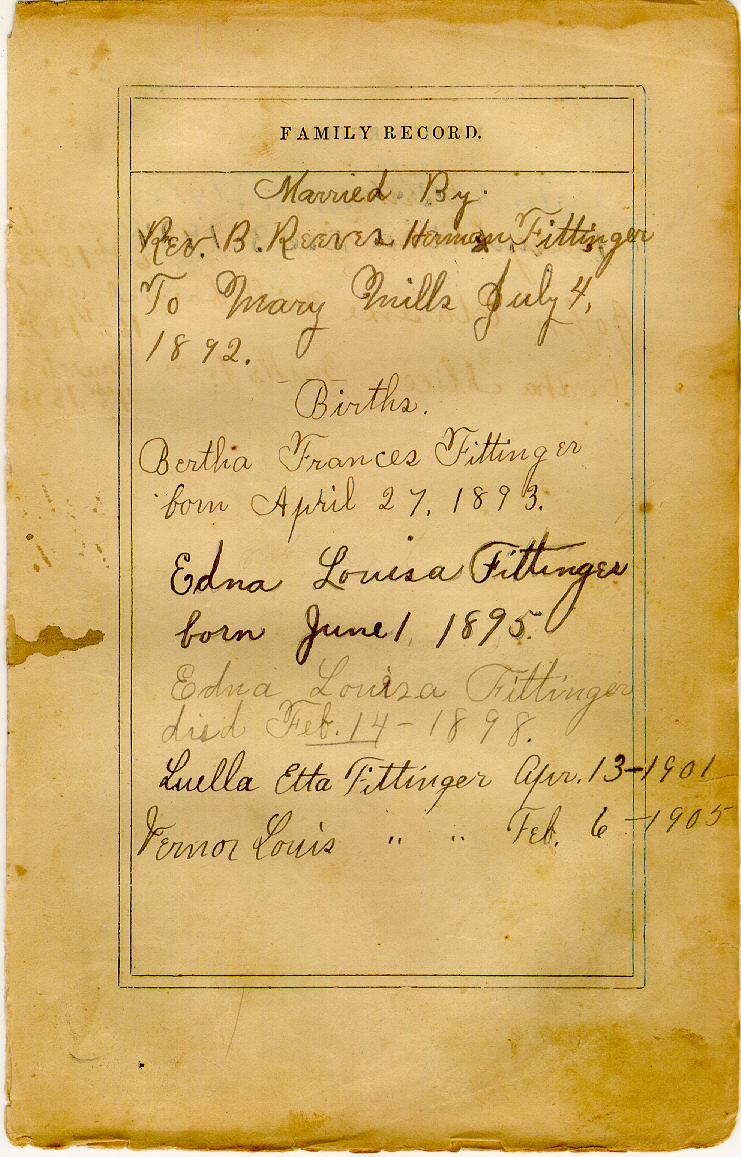 FAMILY RECORD.
Married By.
Rev. B. Reeves Herman Fittinger
To Mary Mills July 4,
1892.
Births.
Bertha Frances Fittinger
born April 27, 1893.
Edna Louisa Fittinger
born June 1, 1895.
Edna Louisa Fittinger
died Feb. 14 - 1898.
Luella Etta Fittinger Apr. 13-1901
Vernor Louis " " Feb. 6 - 1905